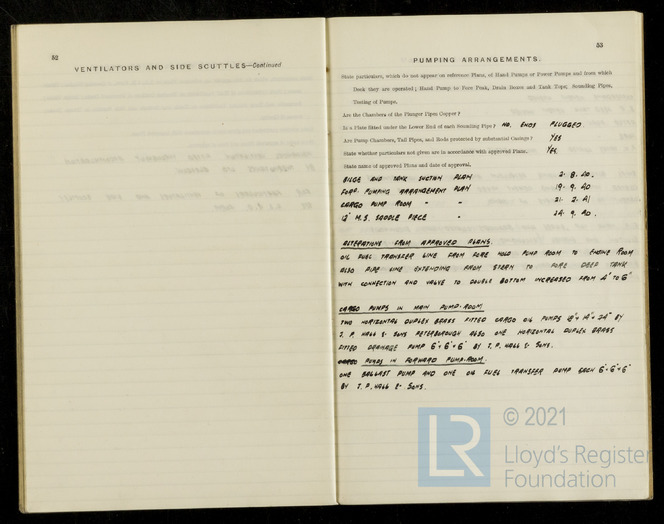 52
VENTILATORS AND SIDE SCUTTLES—Continued
53
PUMPING ARRANGEMENTS.
State particulars, which do not appear on reference Plans, of Hand Pumps or Power Pumps and from which
Deck they are operated; Hand Pump to Fore Peak, Drain Boxes and Tank Tops; Sounding Pipes,
Testing of Pumps.
Are the Chambers of the Plunger Pipes Copper?
Is a Plate fitted under the Lower End of each Sounding Pipe? NO. ENDS PLUGGED.
Are Pump Chambers, Tail Pipes, and Rods protected by substantial Casings? YES
State whether particulars not given are in accordance with approved Plans. YES.
State name of approved Plans and date of approval.
BILGE AND TANK SUCTION PLAN 2. 8. 40.
FORD. PUMPING ARRANGEMENT PLAN 19. 9. 40
CARGO PUMP ROOM " " 21. 2. 41
12" M.S. SADDLE PIECE " 24. 9. 40.
ALTERATIONS FROM APPROVED PLANS.
OIL FUEL TRANSFER LINE FROM FORE HOLD PUMP ROOM TO ENGINE ROOM
ALSO PIPE LINE EXTENDING FROM STERN TO FORE DEEP TANK
WITH CONNECTION AND VALVE TO DOUBLE BOTTOM INCREASED FROM 4" TO 6"
CARGO PUMPS IN MAIN PUMP-ROOM
TWO HORIZONTAL DUPLEX BRASS FITTED CARGO OIL PUMPS 14" 24" BY
J. P. HALL & SONS PETERBOROUGH ALSO ONE HORIZONTAL DUPLEX BRASS
FITTED DRAINAGE PUMP 6" x 6" x 6" BY J. P. HALL & SONS.
CARGO PUMPS IN FORWARD PUMP-ROOM.
ONE BALLAST PUMP AND ONE OIL FUEL TRANSFER PUMP EACH 6" x 6" x 6"
BY J. P. HALL & SONS.
© 2021
LR
Lloyd's Register
Foundation